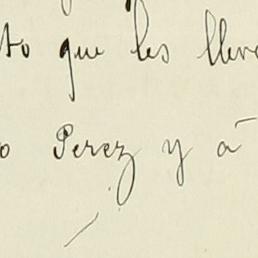 to que les lleva
o Perez y á